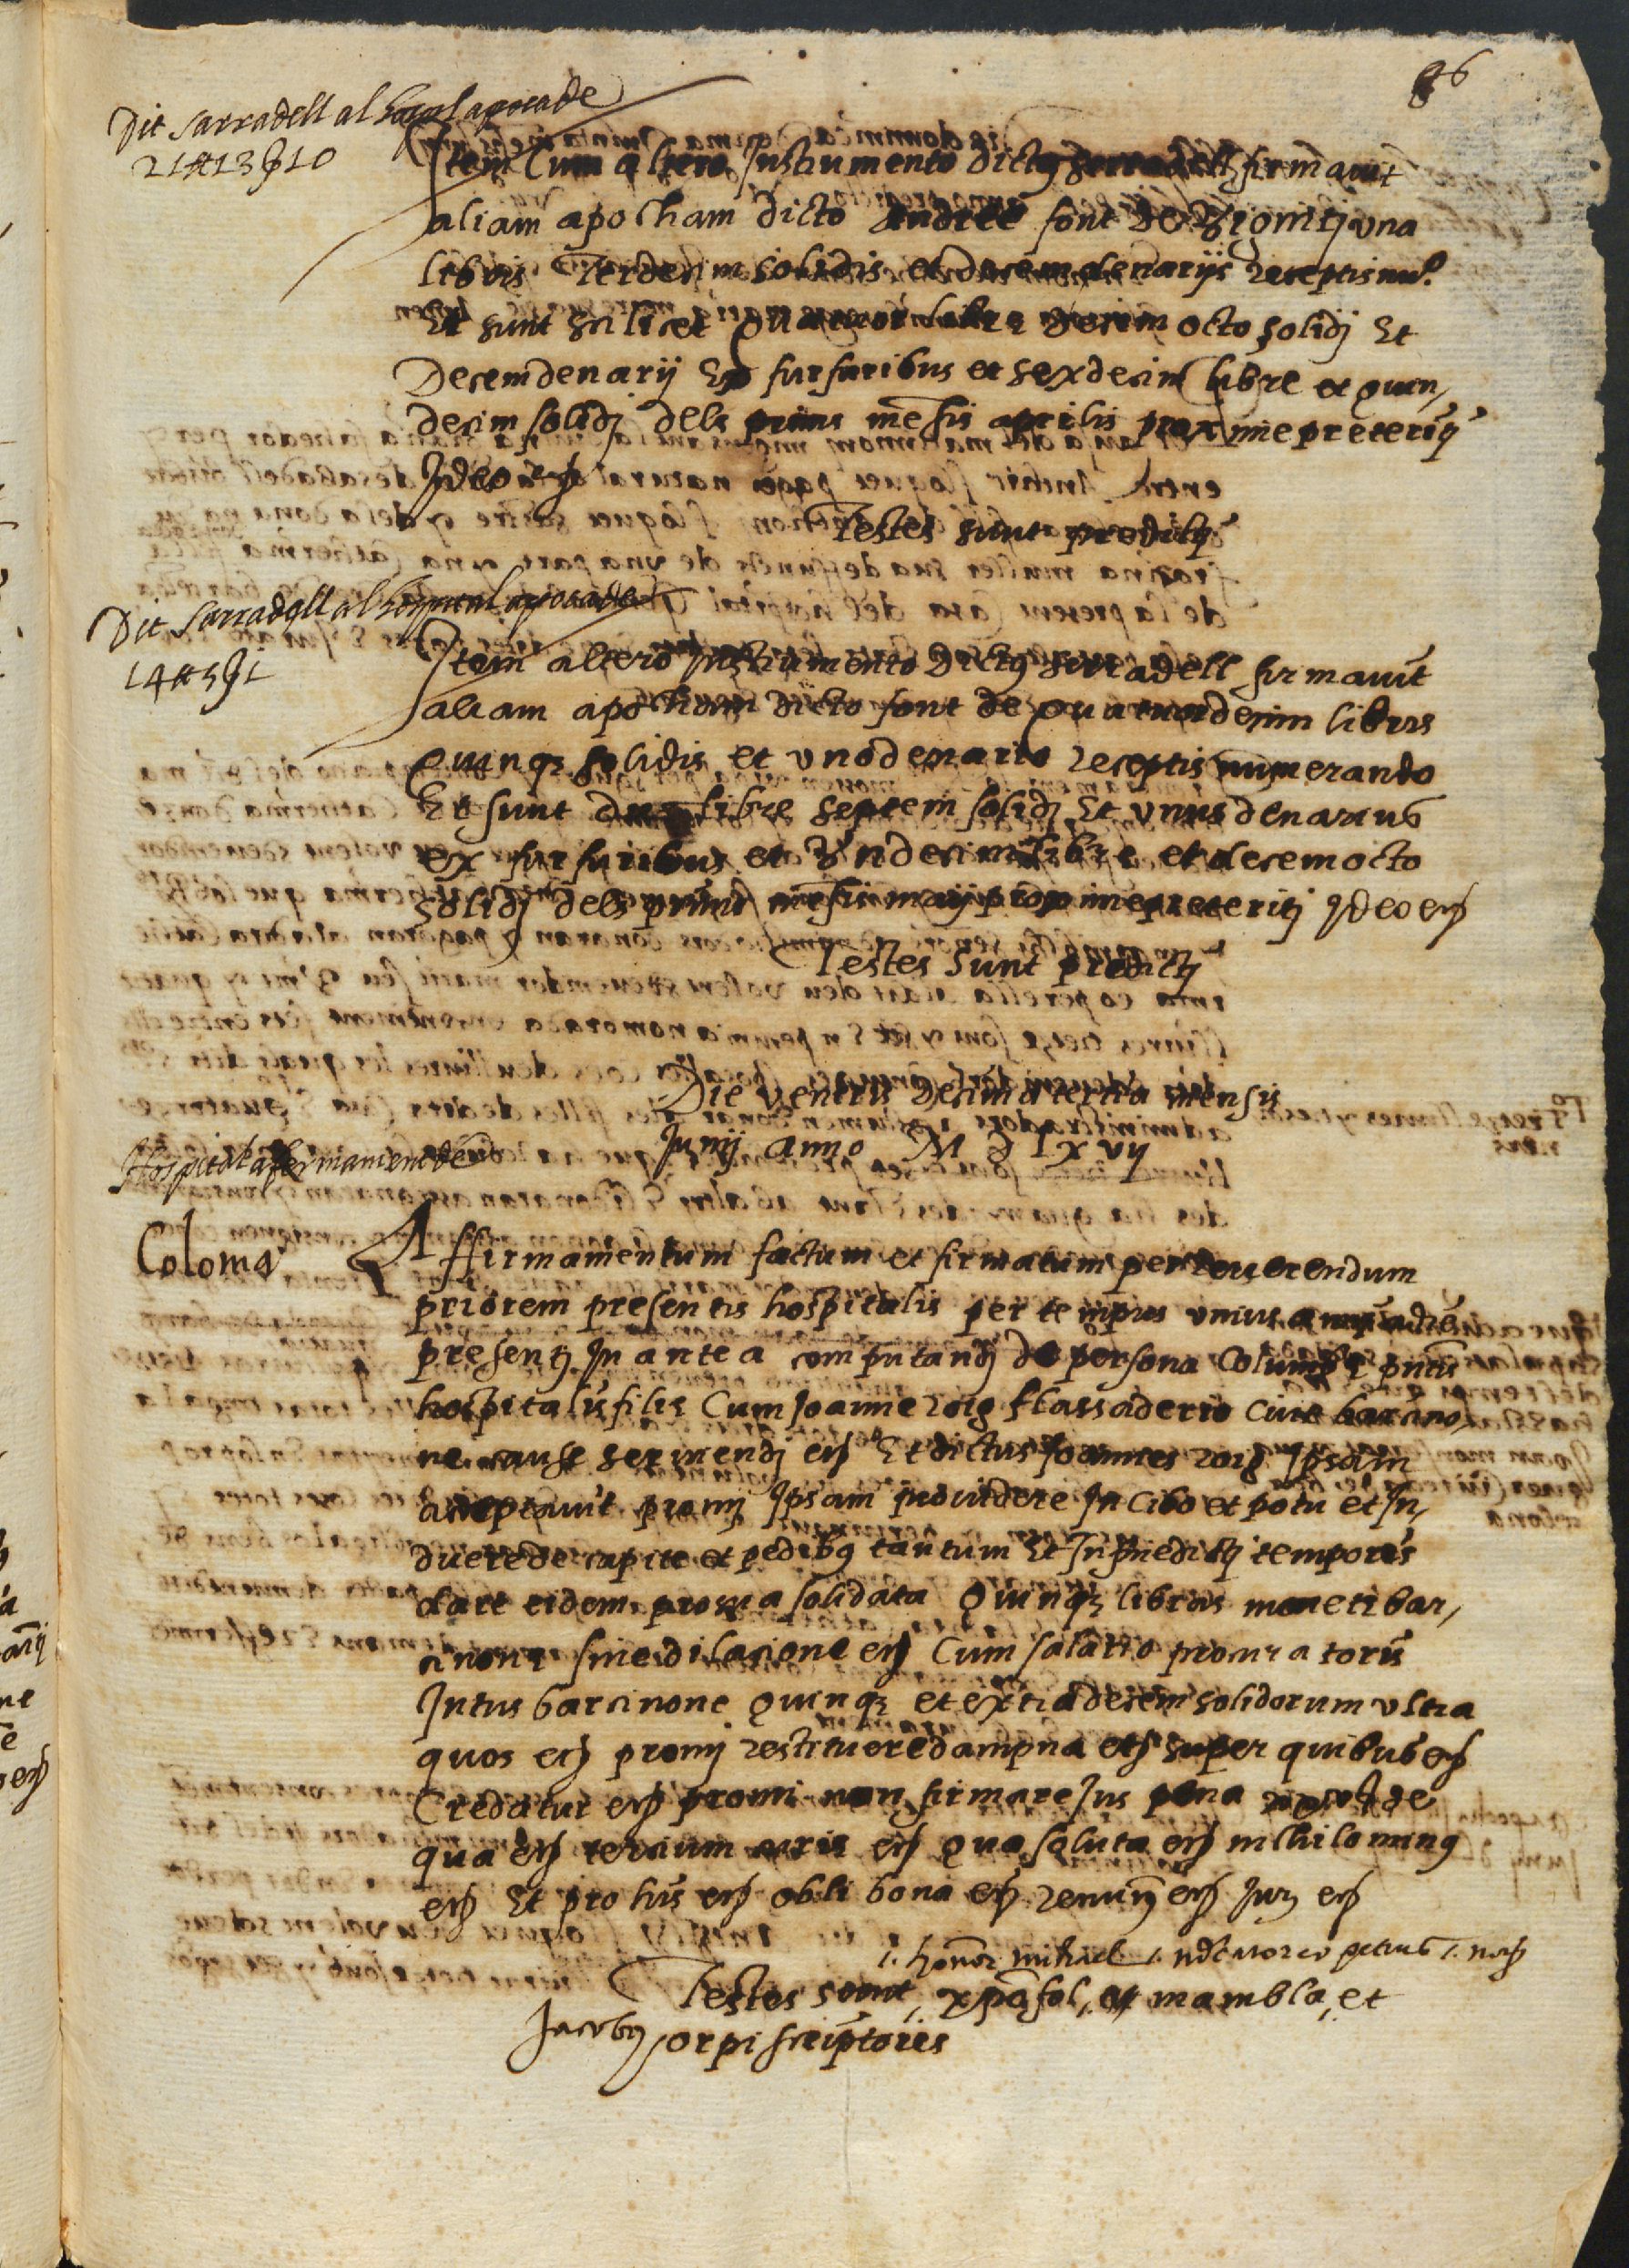 86
Dit sarradell al hospital apocade
21 ₶ 13 ß 10
Item Cum altero Instrumento dictus serradell firmavit
aliam apocham dicto Andree font de viginti una
libris Terdecim solidis et decem denariis receptis nu.o
Et sunt scilicet quatuor libre decem octo solidj Et
Decem denarij Ex furfuribus et sexdecim libre et quin,
decim solidj dels prims mensis aprilis proxime preteritj
Ideo etc
Testes sunt predictj
Dit Sarradell al hospital apocade
14 ₶ 5 ß 1
Item altero Instrumento dictus serradell firmavit
aliam apocham dicto font de quatuordecim libris
quinque solidis et uno denario receptis numerando
Et sunt due libre septem solidj Et unus denarius
ex furfuribus et Undecim libre et decem octo
solidj dels prims mensis maij proxime preteritj Ideo etc
Testes Sunt predictj
Die veneris decima tertia mensis
Junij anno M D Lxvij
Hospital afermament de
Coloma
Affirmamentum factum et firmatum per Reverendum
priorem presentis hospitalis per tempus unius annj a die
presentj In antea computandj de persona Columbe pntis
hospitalis filie Cum Joanne roig flassaderio Cive barcino,
ne causa serviendj etc Et dictus Joannes roig Ipsam
acceptavit promj Ipsam providere In Cibo et potu et In,
duere de capite et pedibus tantum Et In fine dictj temporis
dare eidem pro sua solidata Quinque libras monete bar,
cinone sine dilacione etc Cum salario procuratoris
Intus barcinone quinque et extra decem solidorum ultra
quos etc promj restituere dampna etc super quibus etc
Credatur etc promj non firmare Jus pena de
qua etc tercium curie etc qua soluta etc nihilominus
etc Et pro his etc obli bona etc renunc etc Jur etc
honor. mihael petrus
Testes sunt, xpõfol, et mambla, et
Jacobus sorpi scriptores